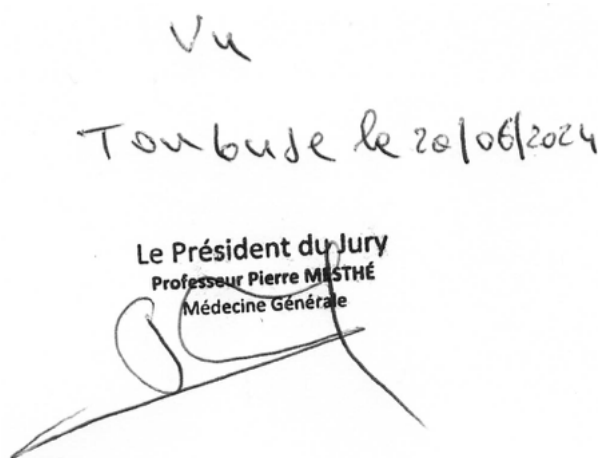 Vu
Toulouse le 20/06/2024
Le Président du Jury
Professeur Pierre MESTHÉ
Médecine Générale